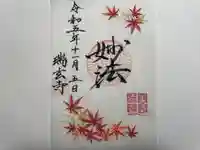 妙法
令和五年十一月五日
瑞玄寺